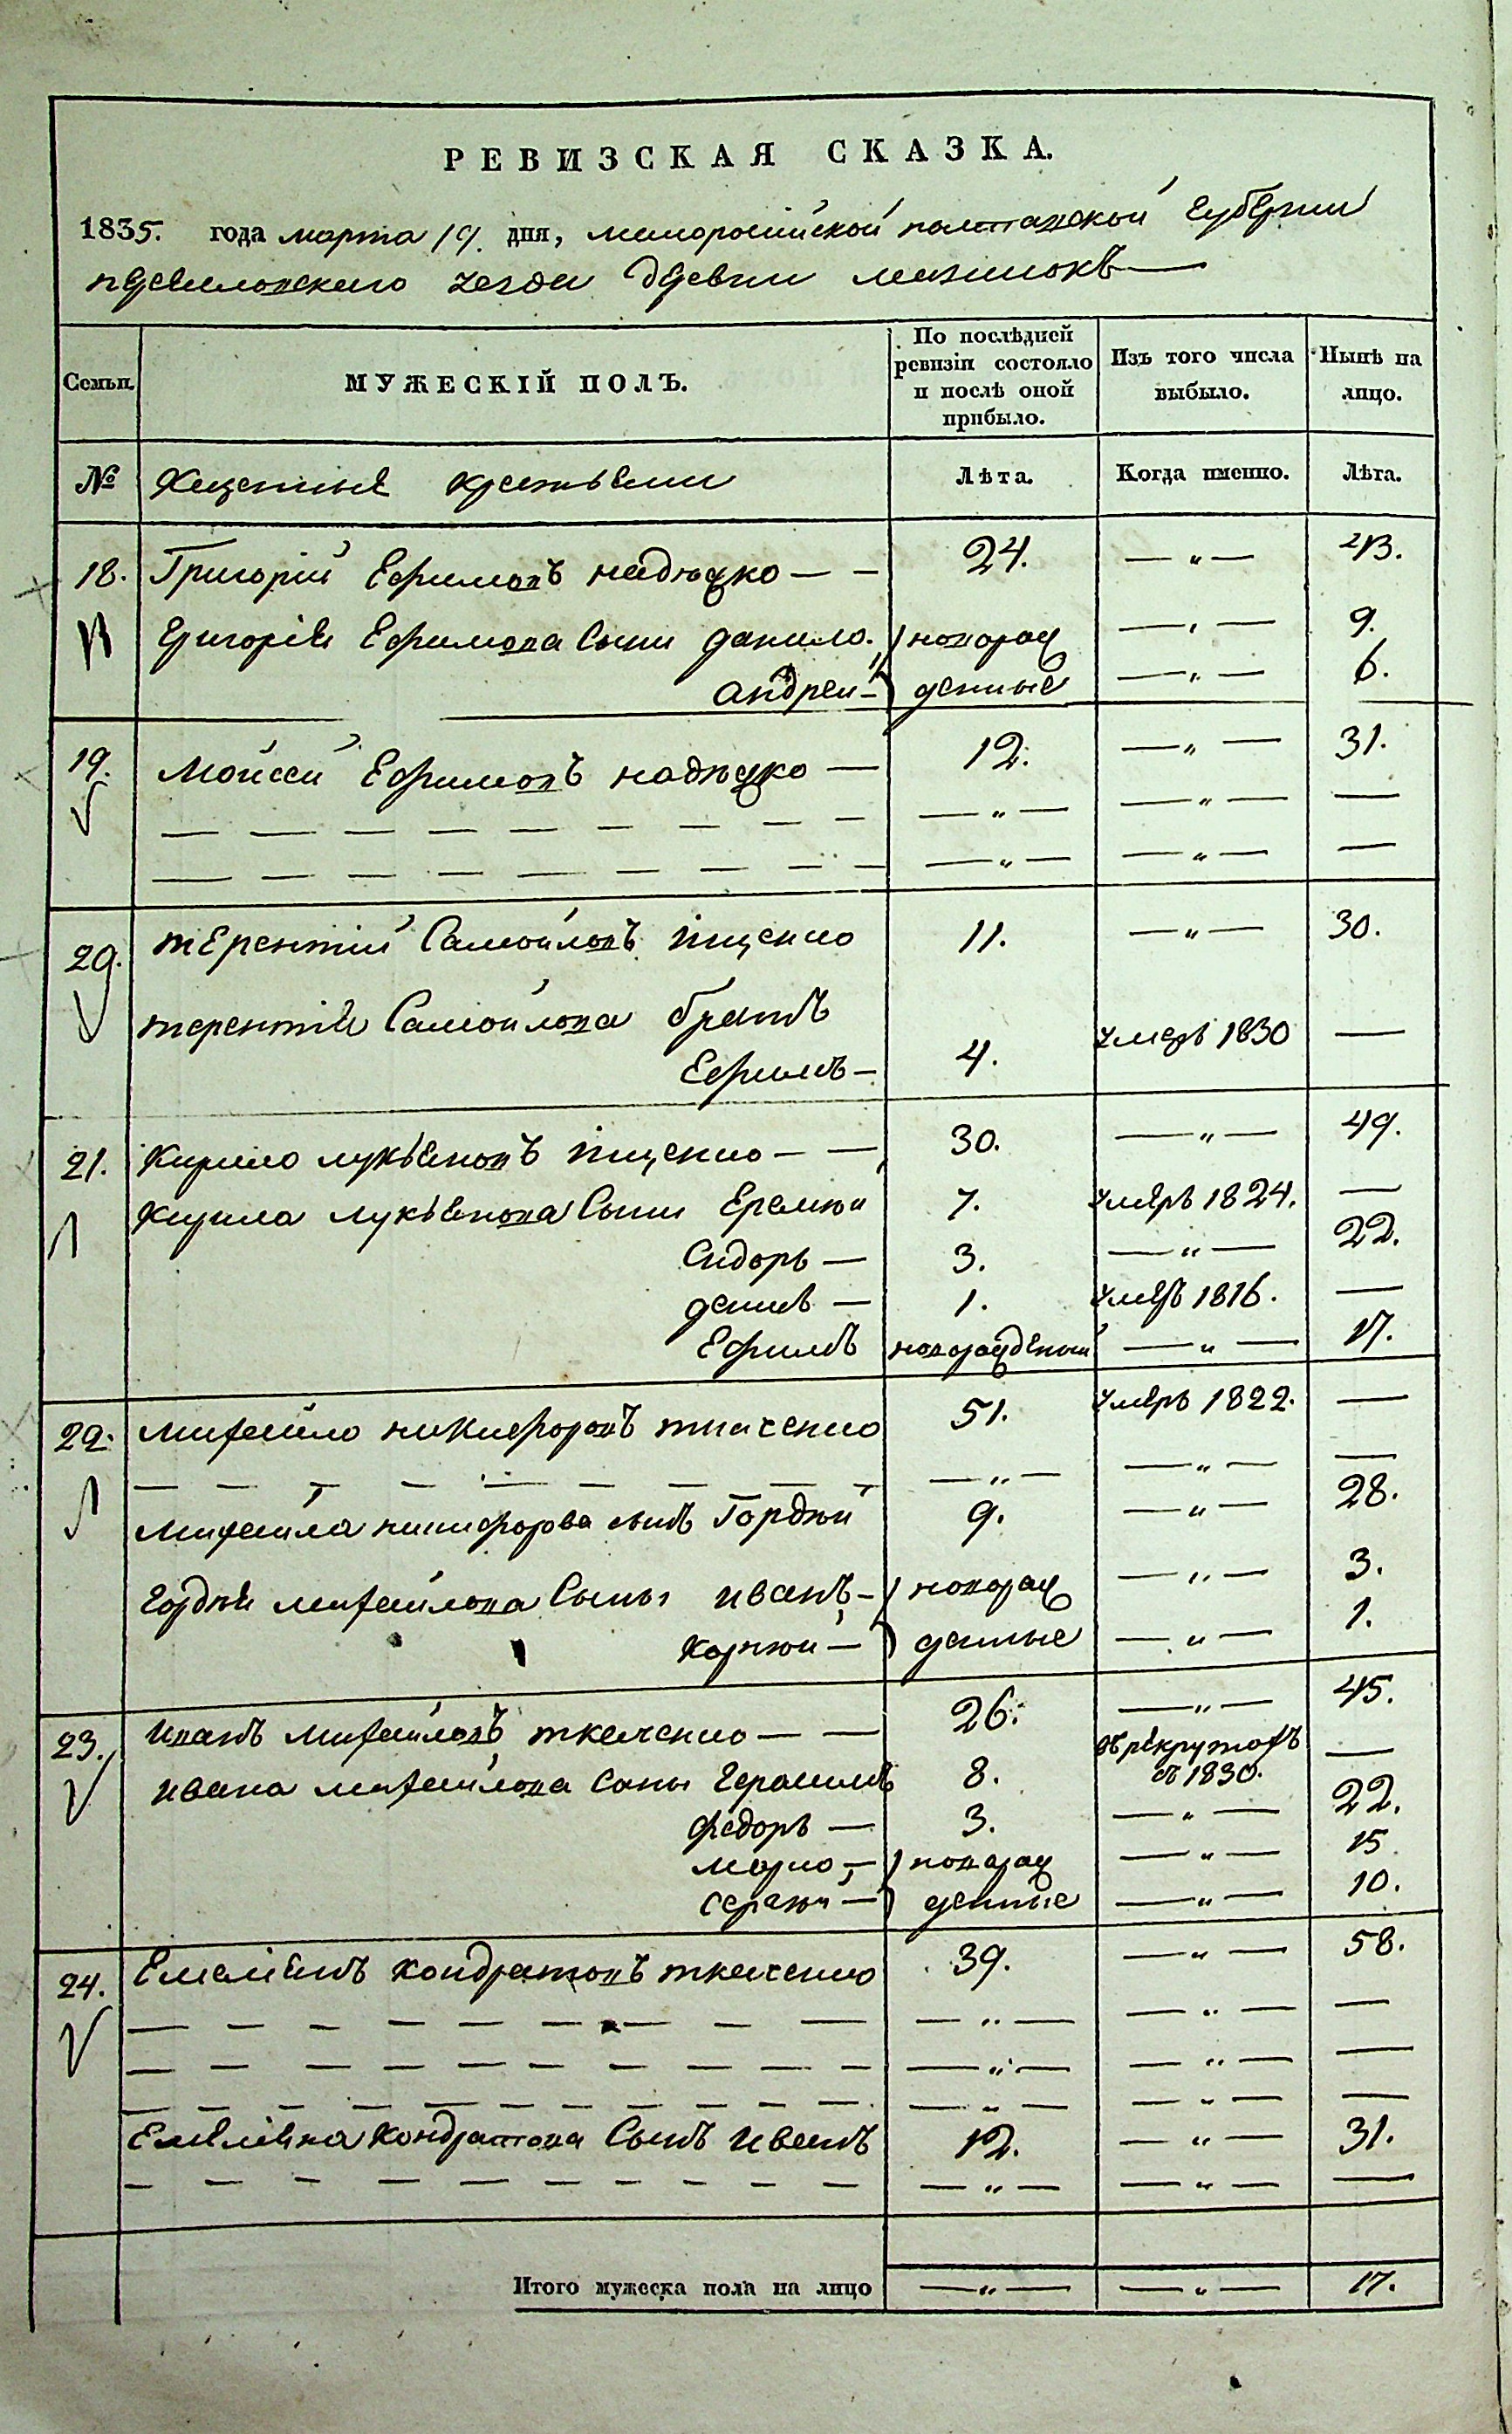 РЕВИЗСКАЯ СКАЗКА.
1835. года марта 19. дня, малоросійской полтавской губерніи
уезда деревни
Семьи.
МУЖЕСКІЙ ПОЛЪ.
По послѣдней ревизіи состояло и послѣ оной прибыло.
Изъ того числа выбыло.
Нынѣ на лицо.
№ крестьяни Лѣта. Когда именно. Лѣта.
18. Григорій Ефимовъ — — 24. — „ — 43.
Григорія Ефимова Сыни данило. новорож — „ — 9.
андрей — денные — „ — 6.
19. Мойсей Ефимовъ — 12. — „ — 31.
20. терентій Самойловъ іщенко 11. — „ — 30.
терентія Самойлова братъ
Ефимъ — 4. умеръ 1830 —
21. Кирило лукьяновъ іщенко — — 30. — „ — 49.
Кирила лукьянова Сыни Еремѣй 7. умеръ 1824. —
Сидоръ — 3. — „ — 22.
денисъ — 1. умеръ 1816. —
Ефимъ новорожденый — „ — 17.
22. михайло никифоровъ ткаченко 51. умеръ 1822. —
михайла никифорова сынъ Гордѣй 9. — „ — 28.
Гордѣя михайлова Сыны иванъ — новорож — „ — 3.
корнѣй — денные — „ — 1.
23. иванъ михайловъ ткаченко — — 26. — „ — 45.
ивана михайлова Сыны Герасимъ 8. въ рекрутахъ —
съ 1830.
федоръ — 3. — „ — 22.
марко — новорож — „ — 15
сергѣй — денные — „ — 10.
24. Емеліянъ кондратовъ ткаченко 39. — „ — 58.
Емеліяна кондратова Сынъ иванъ 12. — „ — 31.
Итого мужеска пола на лицо — „ — — „ — 17.